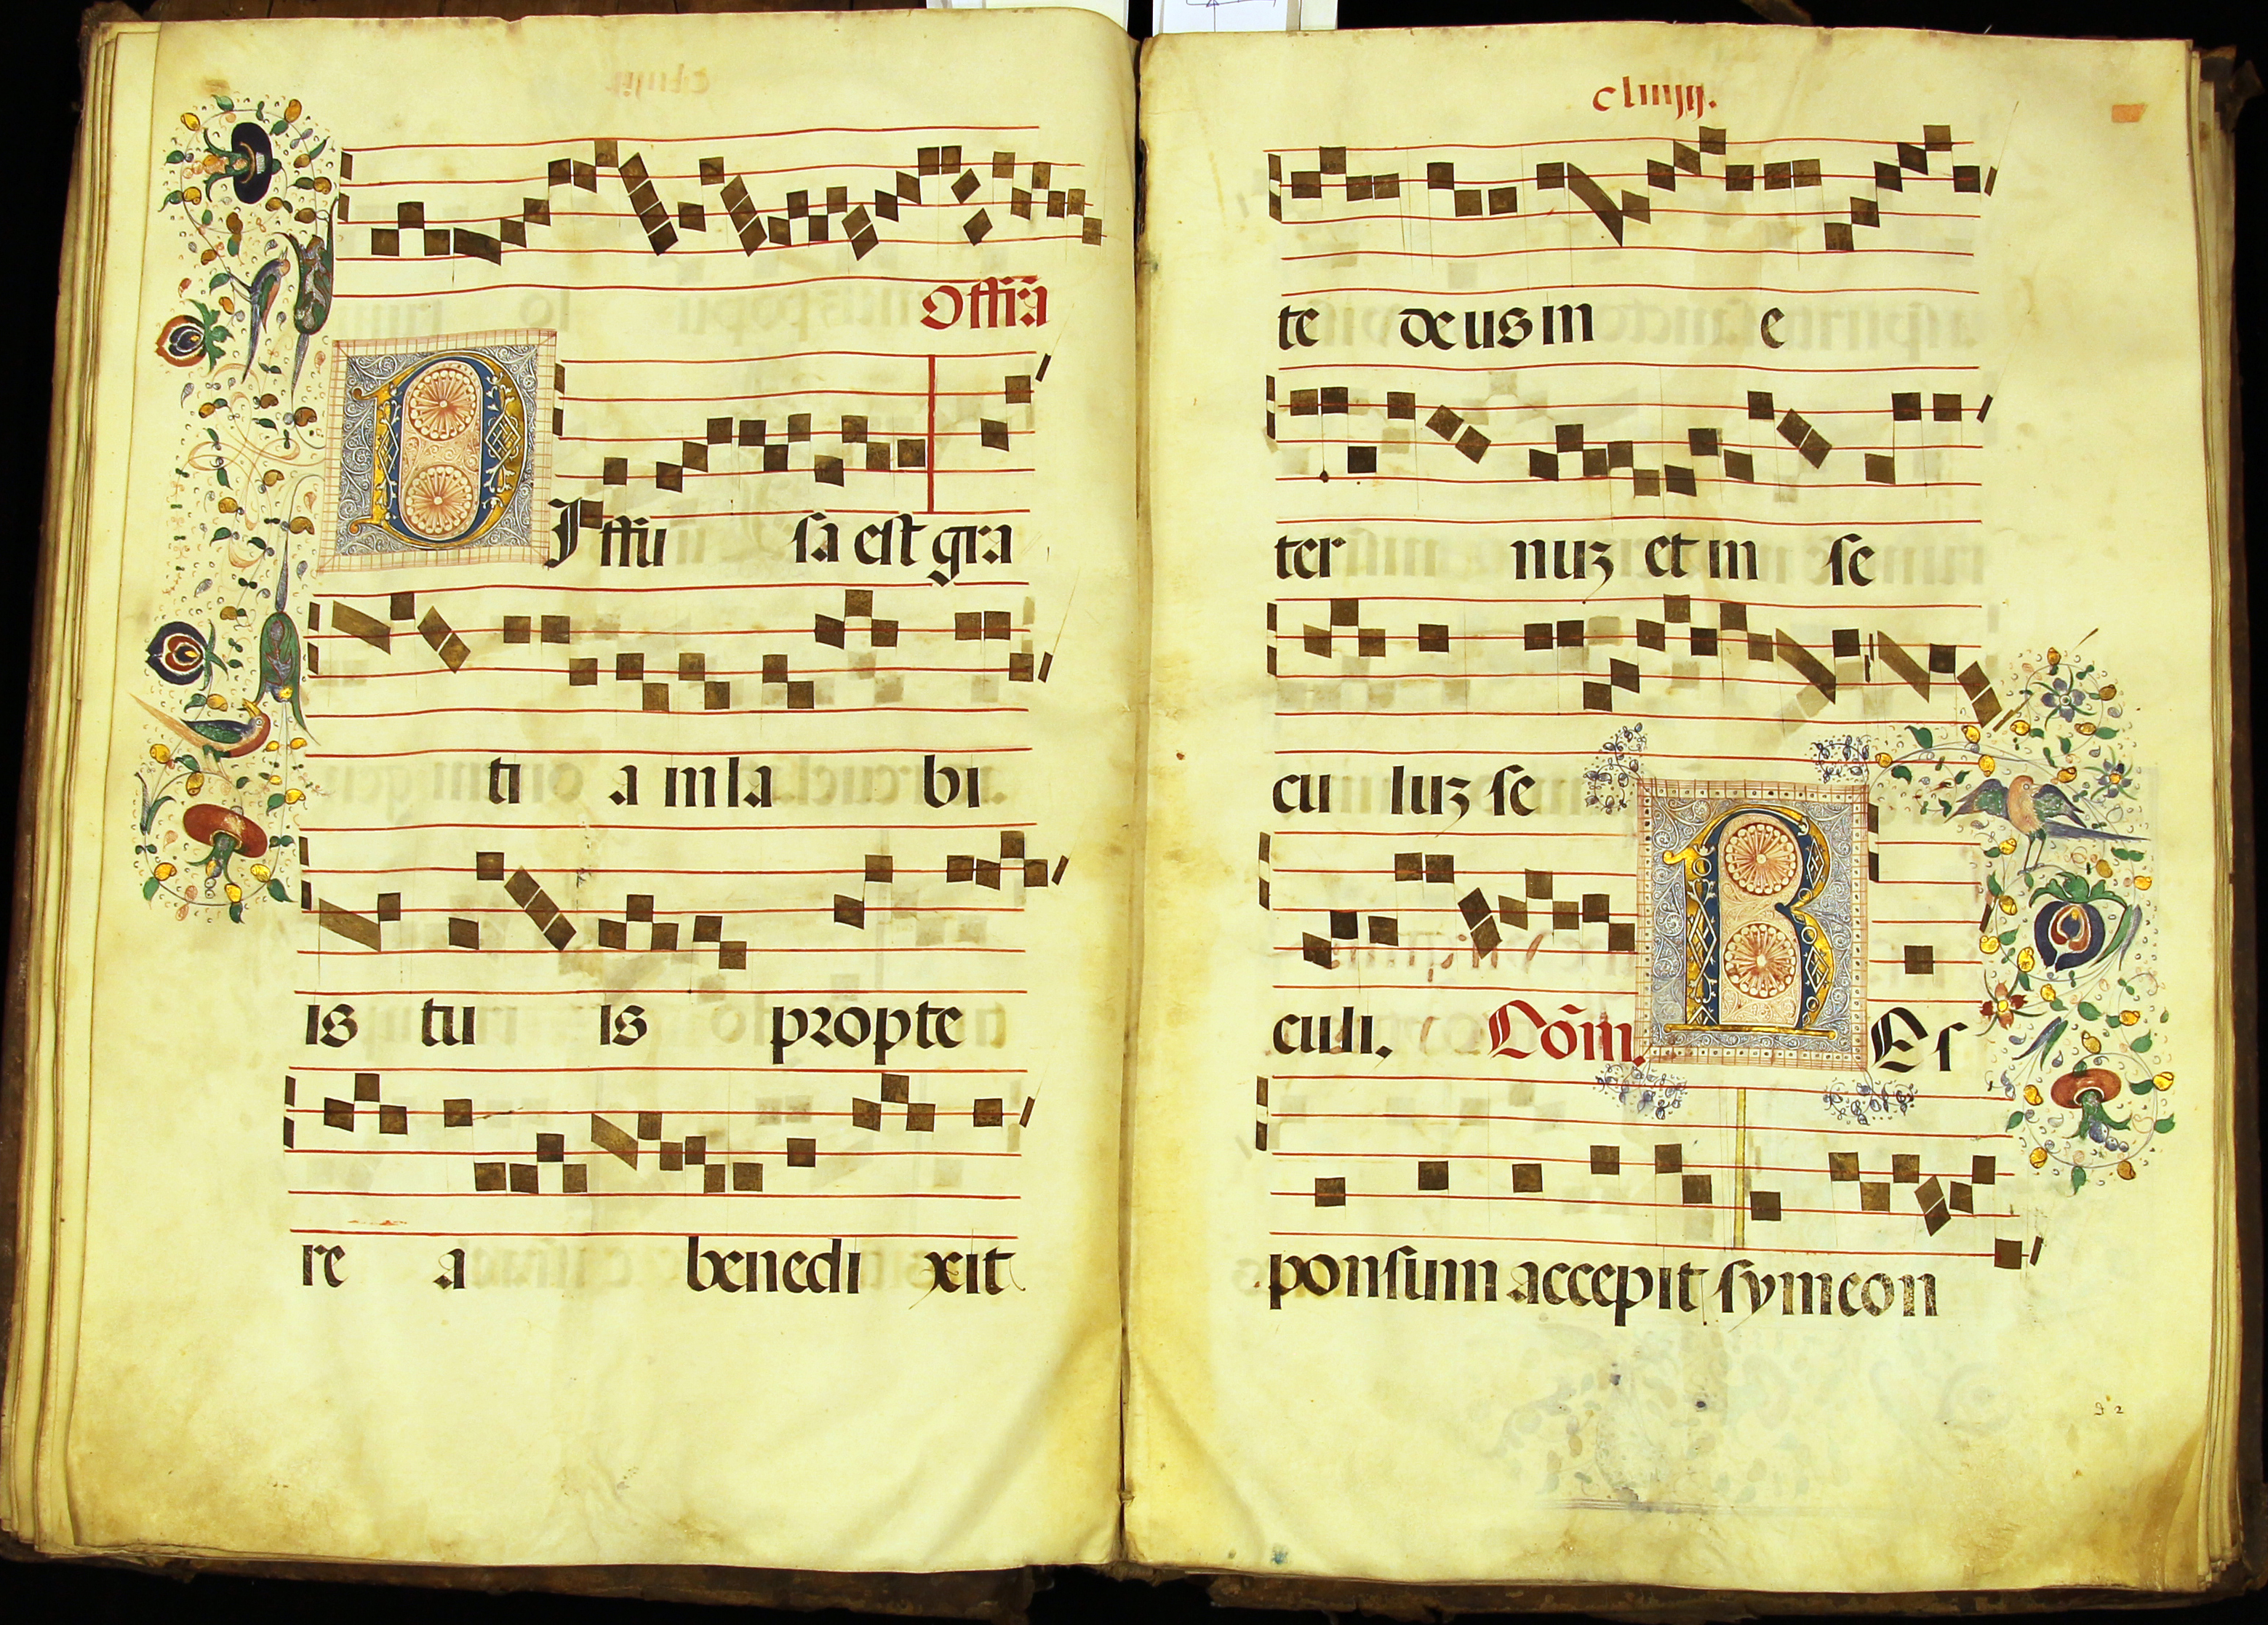 Offr̃a
DIffu sa est gra
ti a in la bi
is tu is propte
re a benedi xit
te deus in e
ter nuʒ et in se
cu luʒ se
culi. Cõm. REs
ponsum accepit symeon
92